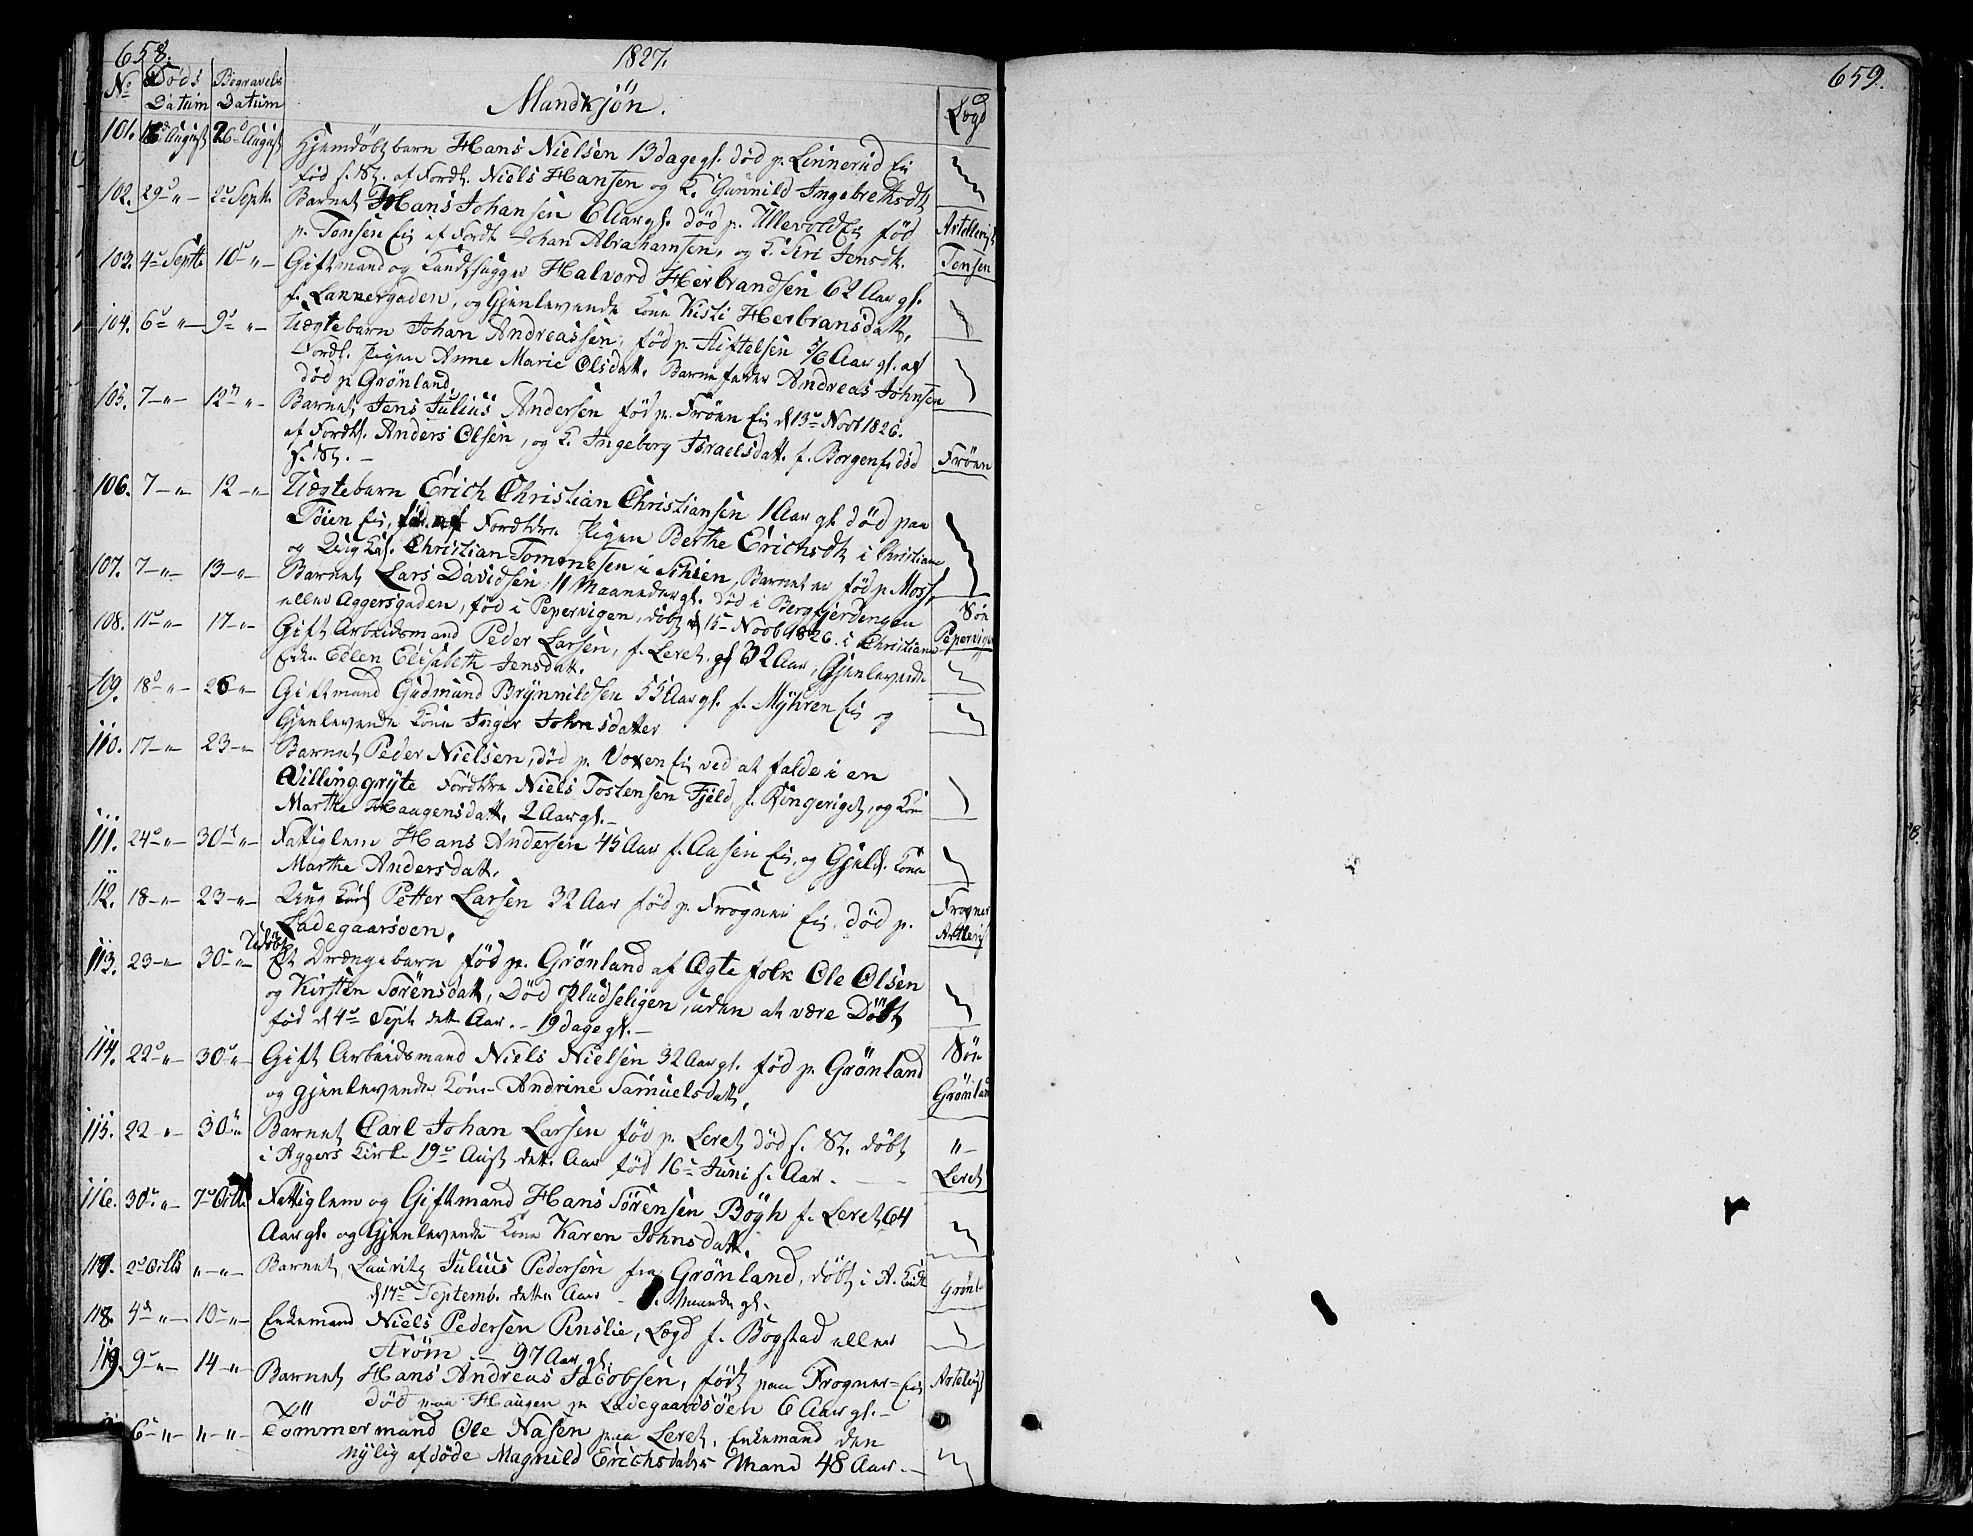 658.
1827.
No Döds Datum Begravels Datum
Mandkjön.
Lægd
101. 16d August 26d August Hjemdöbt barn Hans Nielsen 13 dage gl. död p. Linnerud Eie
föd s. St. af Fordl. Niels Hansen og K. Gunnild Ingebretsdt
102. 29d " 2d Septb Barnet Hans Johansen 6 Aar gl. död p. Ullevold Eie föd
p. Tonsen Eie af Fordl Johan Abrahamsen, og K. Siri Jensdt.
Artelleriet
Tonsen
103. 4d Septb 10d " Giftmand og Huusm Halvord Herbrandsen 62 Aar gl.
f. Lakkergaden, og Gjenlevende Kone Kisti Herbransdatt.
104. 6d " 9d " Uægtebarn Johan Andreassen, föd p. Stiftelsen 5/6 Aar gl. af
Fordl. Pigen Anne Marie Olsdatt, Barnefader Andreas Johnsen
död p Grönland.
105. 7 " 12d " Barnet Jens Julius Andersen föd p. Fröen Eie d 13d Novb 1826.
af Fordl. Anders Olsen, og K. Ingeborg Israelsdatt. f. Borgen Eie död
s. St.
Fröen
106. 7 " 12 " Uægtebarn Erich Christian Christiansen 1 Aar gl död paa
Töien Eie, föd af Fordldre Pigen Berthe Erichsdt i Christiania
og Ung Karl Christian Tommesen i Schien,
107. 7 " 13 " Barnet Lars Davidsen 11 Maaneder gl. död i Bergfjerdingen
Barnet er föd p. Moss
eller Aggersgaden, föd i Pepervigen, döbt d 15 Novb 1826 i Christiania
Sön
Pepervigen
108. 11d " 17 " Gift Arbeidsmand Peder Larsen, f. Leret gl 32 Aar, Gjenlevende
Enke Ellen Elisabeth Jensdatt.
109. 18d " 26 " Giftmand Gudmund Brynnildsen 55 Aar gl. f. Myhren Eie og
Gjenlevende Kone Inger Johnsdatter
110. 17 " 23 " Barnet Peder Nielsen, död p. Voxen Eie ved at falde i en
Villinggryte Fordldre Niels Tostensen Fjeld, f. Ringeriget, og Kone
Marthe Haagensdatt, 2 Aar gl.
111. 24d " 30d " Fattiglem Hans Andersen 45 Aar f. Aasen Eie, og Gjenl. Kone
Marthe Andersdatt.
112. 18 " 23 " Ung Karl Petter Larsen 32 Aar föd p. Frogner Eie, död p.
Ladegaarsöen.
Frogner
Artleri
113. 23 " 30 " Udöbt Et Drengebarn föd p. Grönland af Ægtefolk Ole Olsen
og Kirsten Sörensdatt, Död Pludseligen, uden at være Döbt
föd d 4d Sept dett Aar. 19 dage gl.
114. 22d " 30d " Gift Arbeidsmand Niels Nielsen 32 Aar gl. föd p. Grönland
og gjenlevende Kone Andrine Samuelsdatt,
Sön
Grönland
115. 22 " 30 " Barnet Carl Johan Larsen föd p. Leret död s. St. döbt
i Aggers Kirke 19d Aust dett. Aar föd 16d Juni s. Aar.
"
Leret
116. 30d " 7d Octb Fattiglem og Giftmand Hans Sörensen Bögh f. Leret 64
Aar gl. og Gjenlevende Kone Karen Johnsdatt.
117. 2d Octb " Barnet Lauritz Julius Pedersen fra Grönland, döbt i A. Kirke
d 17d Septemb. dette Aar Maaned gl.
Grönl
118. 4d " 10 " Enkemand Niels Pedersen Pinslie, Lægd f. Bogstad eller
Ström 97 Aar gl.
119. 9d " 14 " Barnet Hans Andreas Jacobsen, födt paa Frogner Eie
död paa Haugen p Ladegaardsöen 6 Aar gl.
6 " " Tömmermand Ole Nasen paa Leret, Enkemand den
nylig afdöde Magnild Erichsdatters Mand 48 Aar.
659.